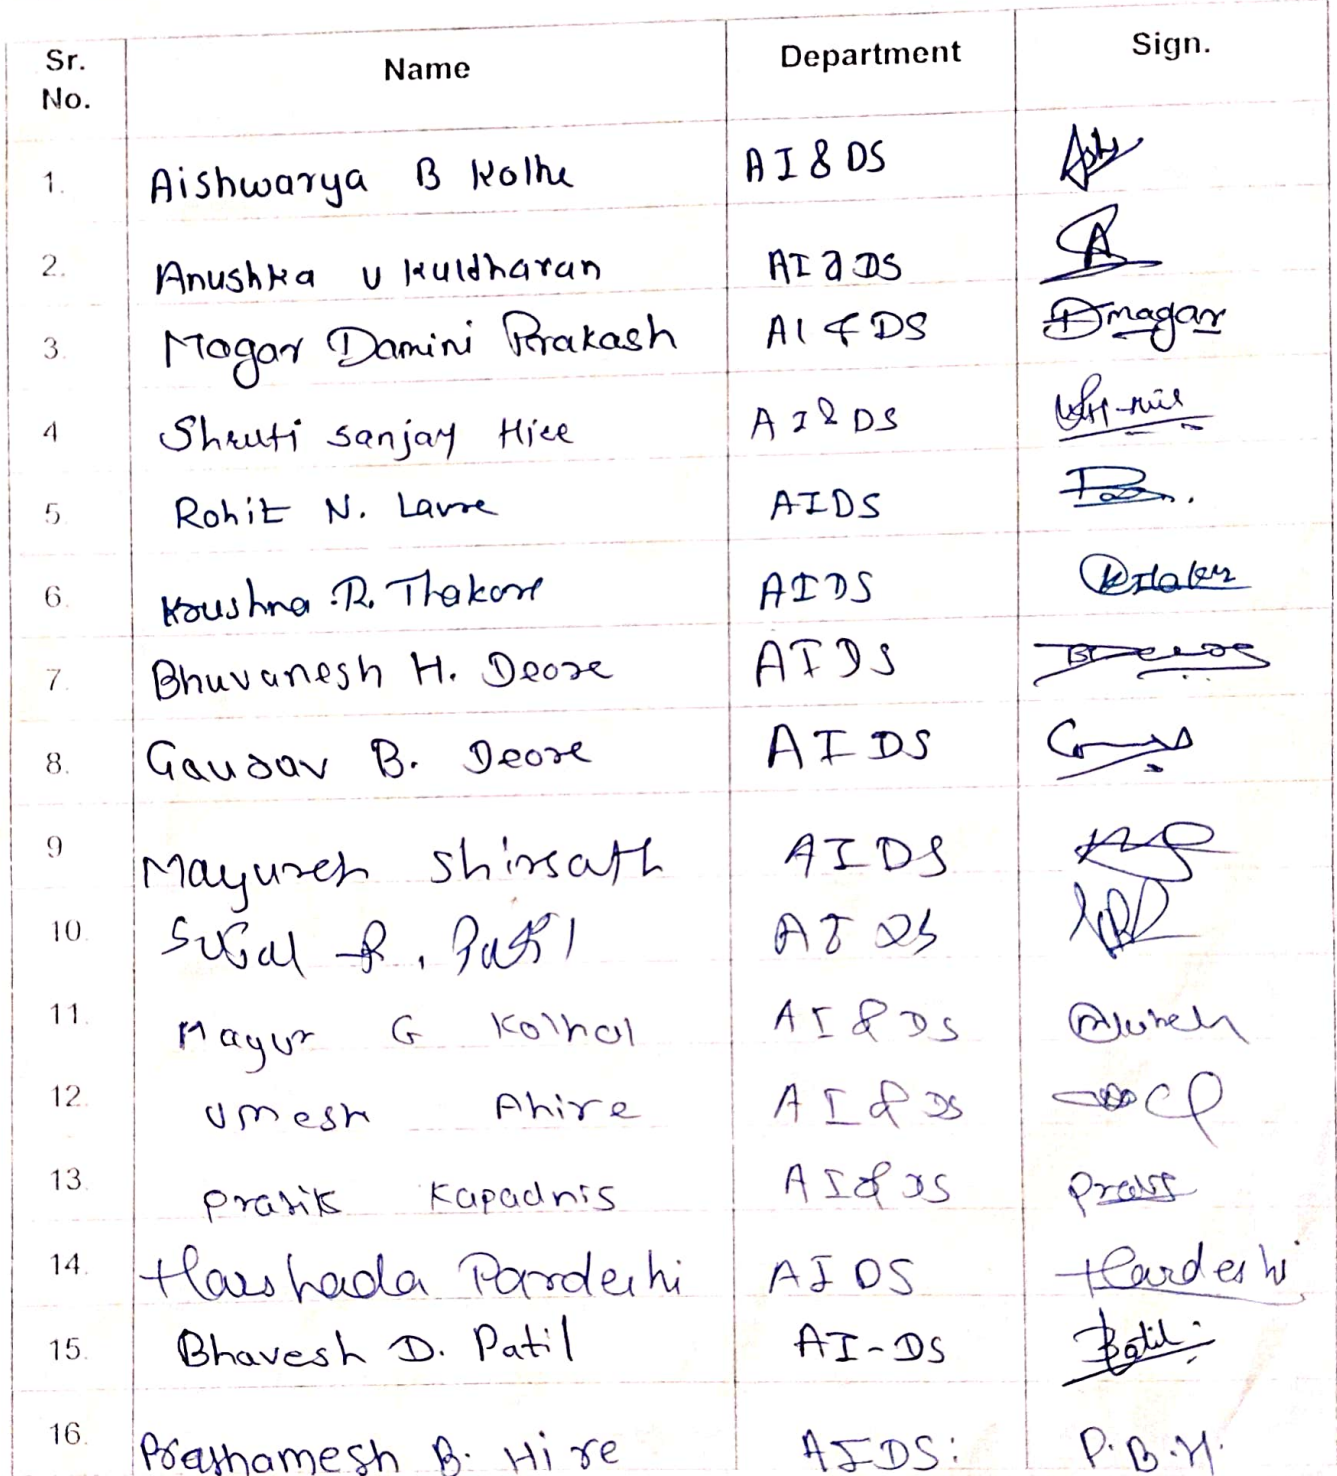 Sr. No. Name Department Sign.
1. Aishwarya B Kolhe AI & DS
2. Anushka U Kuldharan AI & DS
3. Mogar Damini Prakash AI & DS Dmagar
4 Shruti Sanjay Hire AI & DS
5. Rohit N. Lavre AIDS
6. Koushna R. Thakore AIDS
7. Bhuvanesh H. Deore AIDS BDeore
8. Gaurav B. Deore AIDS
9 Mayuresh Shirsath AIDS
10. R. Patil AIDS
11. Mayur G Kolhal AI & DS
12. Umesh Ahire AI & DS
13. Pratik Kapadnis AI & DS
14. Harshada Pardeshi AIDS Hardeshi
15. Bhavesh D. Patil AI-DS BPatil
16. Prathamesh B. Hire AIDS: P.B.H.